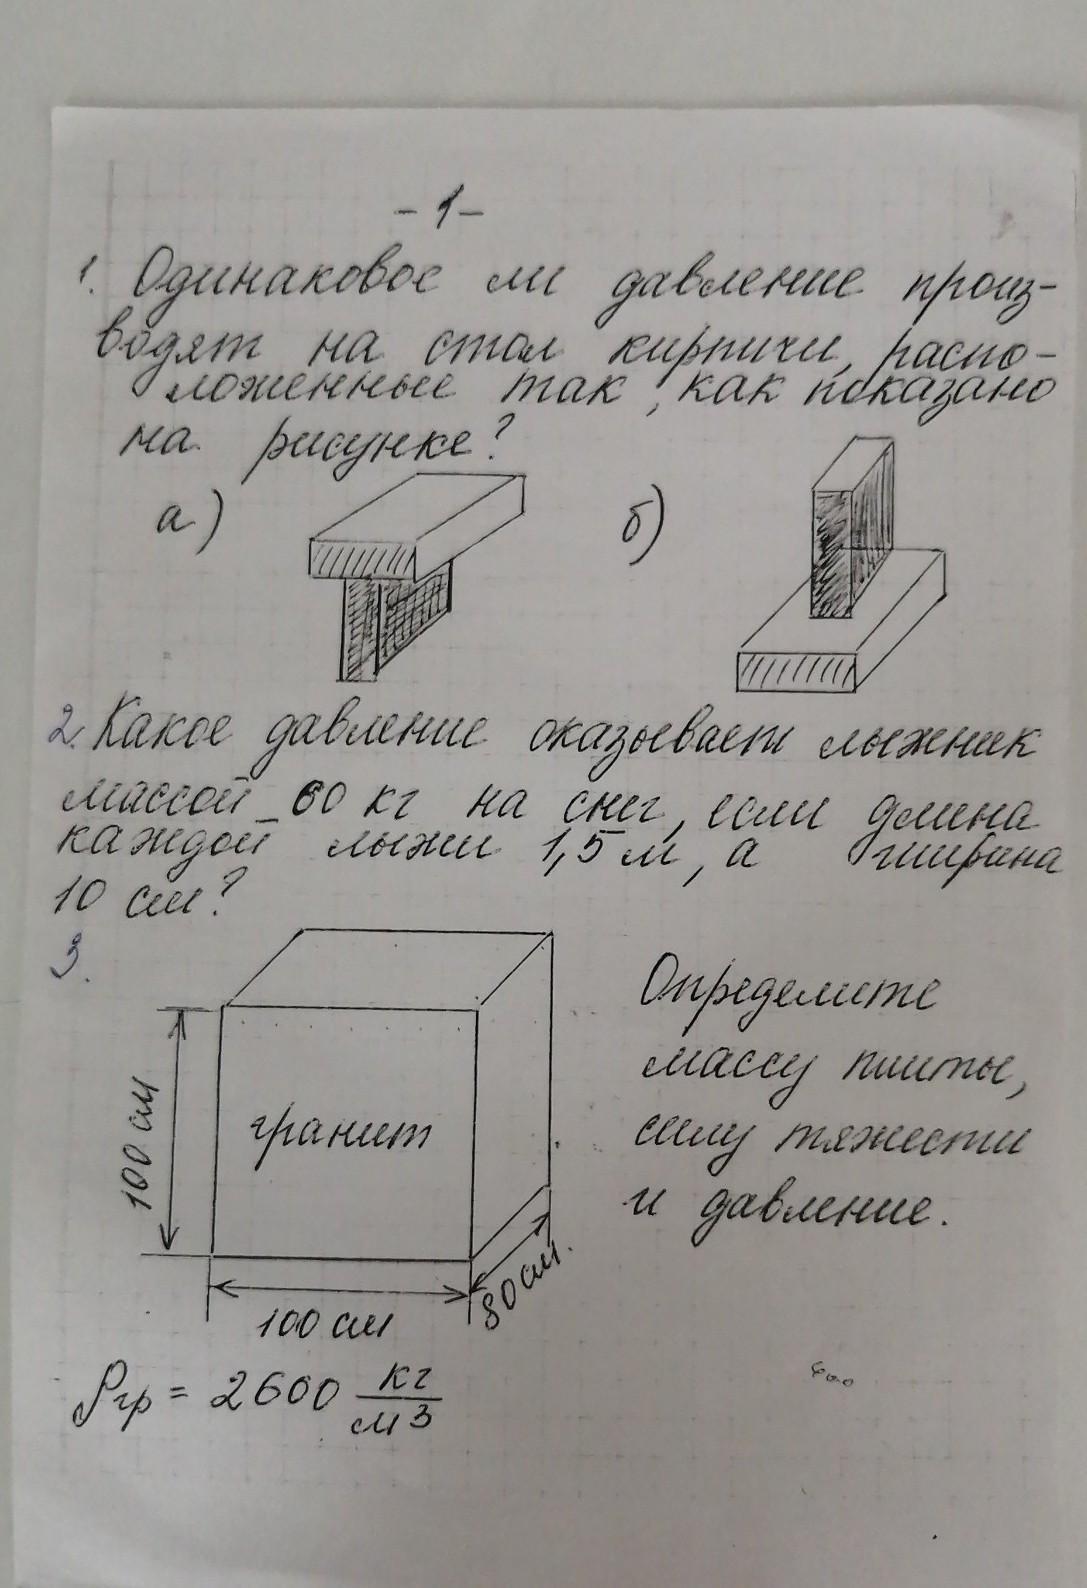 - 1 -
1. Одинаковое ли давление произ-
водят на стол кирпичи, распо-
ложенные так, как показано
на рисунке?
а) б)
2. Какое давление оказывает лыжник
массой 60 кг на снег, если длина
каждой лыжи 1,5 м, а ширина
10 см?
3.
Определите
массу плиты,
силу тяжести
и давление.
100 см
гранит
80 см.
100 см
ρгр = 2600 кг/м3